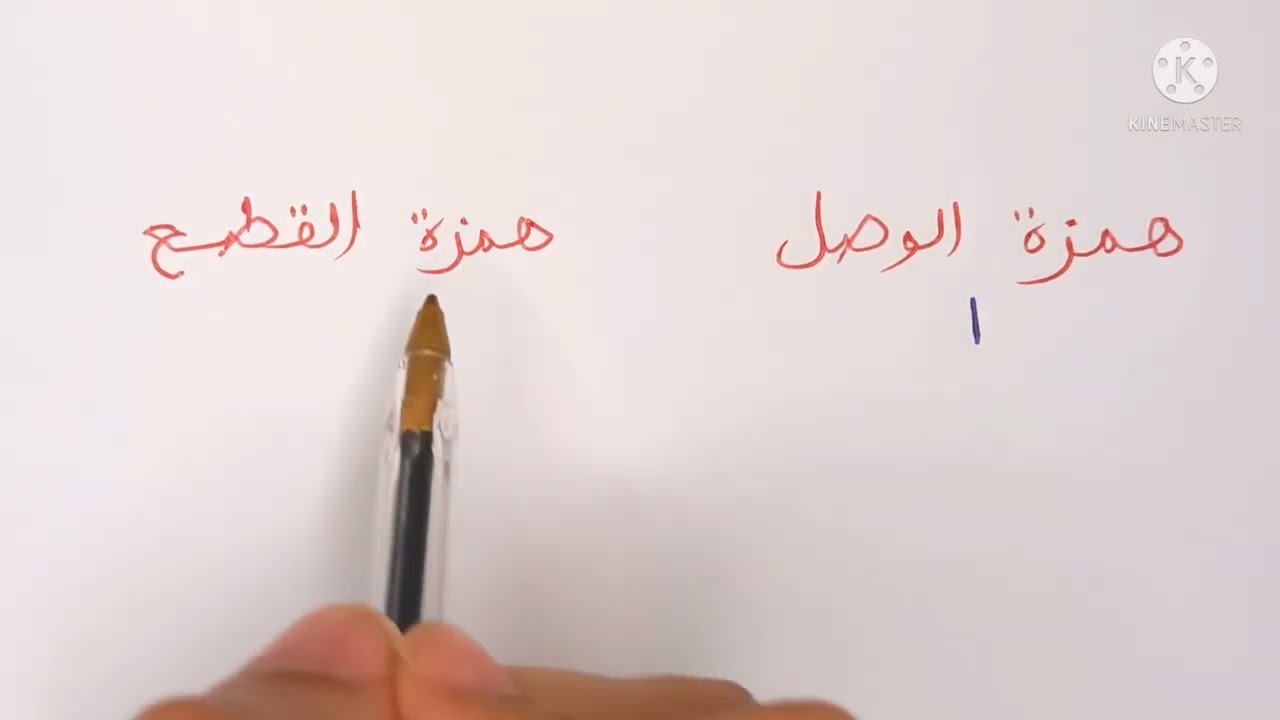 K
KINEMASTER
همزة الوصل همزة القطع
ا